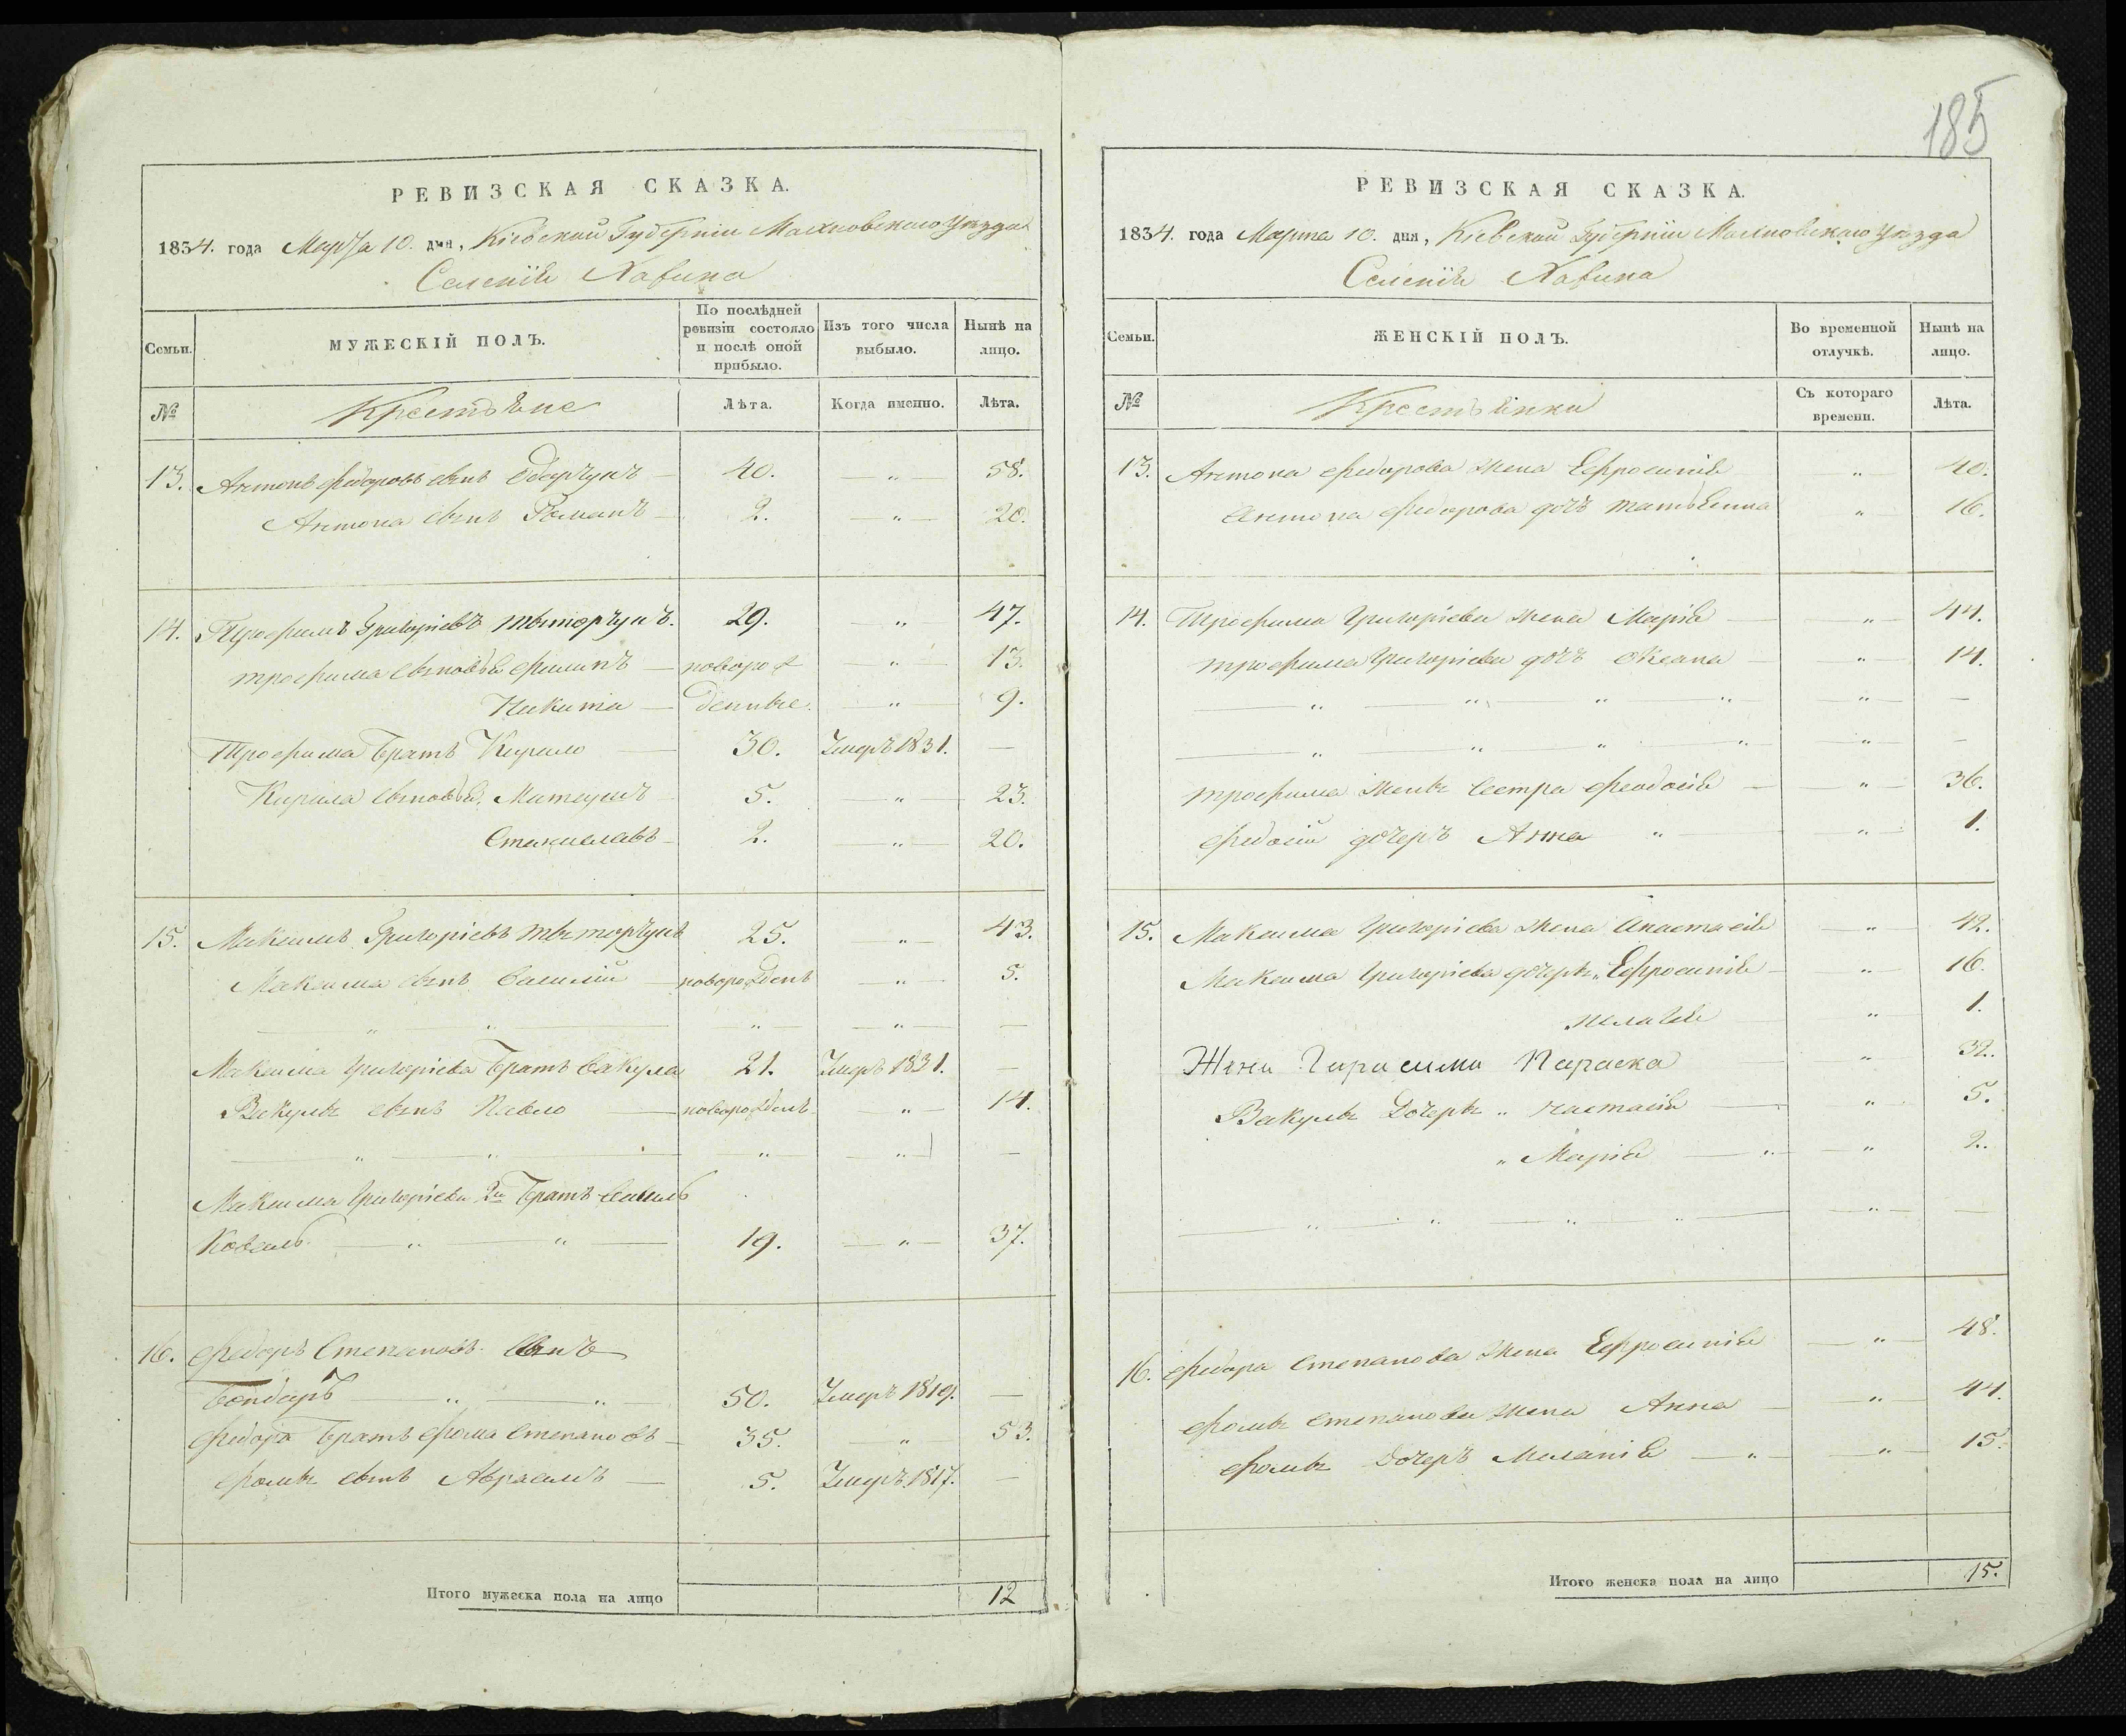 РЕВИЗСКАЯ СКАЗКА.
1834. года Марта 10. дня, Кіевской Губерніи Махновскаго Уезда
Селенія Хавина
Семьи. МУЖЕСКІЙ ПОЛЪ. По послѣдней ревизіи состояло и послѣ оной прибыло. Изъ того числа выбыло. Нынѣ на лицо.
№ Крестьяне Лѣта. Когда именно. Лѣта.
13. Антонъ Федоровъ сынъ 40. — „ — 58.
Антона сынъ Романъ — 2. „ — 20.
14. Трофимъ Григоріевъ Тыторчукъ. 29. „ — 47.
трофима сыновья филипъ — новоро — „ — 13.
Никита — денные. — „ — 9.
Трофима братъ Кирило — 30. Умеръ 1831. —
Кирила сыновья, Матеушъ 5. — „ — 23.
Станиславъ — 2. — „ — 20.
15. Максимъ Григоріевъ Тыторчукъ 25. „ — 43.
Максима сынъ Василій — новорожденъ — „ — 5.
— „ — „ — „ — — „ — —
Максима Григоріева братъ Вакула 21. Умеръ 1831. —
Вакулы сынъ Павло — новорожденъ — „ — 14.
— „ — „ — — „ — — „ — —
Максима Григоріева 2й братъ
Коваль — „ — „ — 19. — „ — 37.
16. Федоръ Степановъ сынъ
Бондарь — „ — „ — 50. Умеръ 1819. —
Федора братъ Фома Степановъ — 35. — „ 53.
Фомы сынъ Абрамъ — 5. Умеръ 1817. —
Итого мужеска пола на лицо 12
185
РЕВИЗСКАЯ СКАЗКА.
1834. года Марта 10. дня, Кіевской Губерніи Махновскаго Уезда
Селенія Хавина
Семьи. ЖЕНСКІЙ ПОЛЪ. Во временной отлучкѣ. Нынѣ на лицо.
№ Крестьянки Съ котораго времени. Лѣта.
13. Антона Федорова жена Ефросинія „ 40.
Антона Федорова дочъ татьянна „ 16.
14. Трофима Григоріева жена Марія — — „ — 44.
трофима Григоріева дочъ — — „ — 14.
— „ — „ — „ — „ — „ — —
— „ — „ — „ — „ — „ — —
трофима жены сестра Феодосія — — „ — 36.
Федосіи дочеръ Анна „ — „ — 1.
15. Максима Григоріева жена Анастасія — „ — 42.
Максима Григоріева дочеры „ Ефросинія — „ — 16.
„ — 1.
Жена Гарасима Параска — „ — 32.
Вакулы дочеры „ настасія — „ — 5.
„ Марія — „ — „ — 2.
— „ — „ — „ — „ — — „ — —
16. Федора Степанова жена Ефросинія — „ — 48.
Фомы Степанова жена Анна — — „ — 44.
Фомы дочеръ Миланія — „ — — „ — 15.
Итого женска пола на лицо 15.